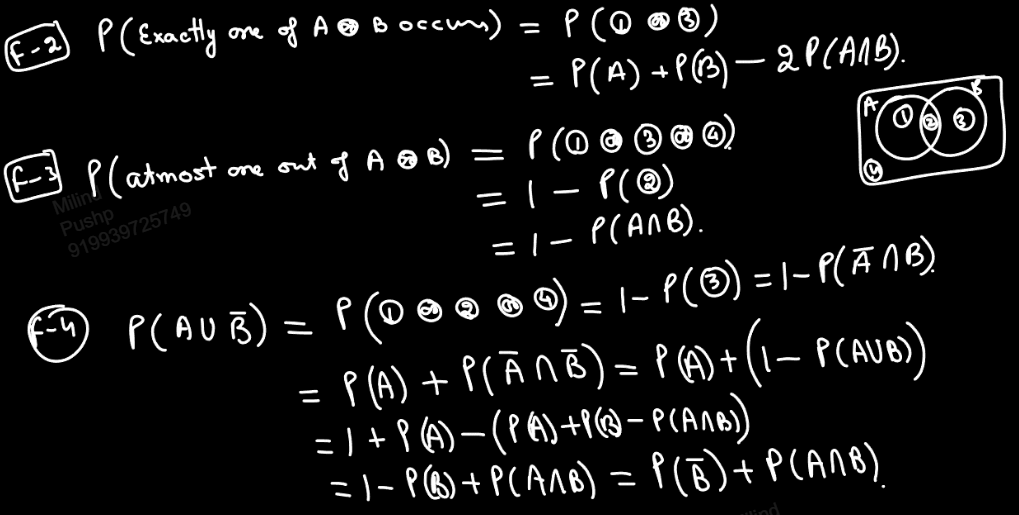 F-2 P(Exactly one of A or B occurs) = P(① or ③)
= P(A) + P(B) – 2P(A∩B).
A B ① ② ③ ④
F-3 P(atmost one out of A or B) = P(① or ③ or ④)
= 1 – P(②)
= 1 – P(A∩B).
Milind
Pushp
919939725749
F-4 P(A∪B̅) = P(① or ② or ④) = 1 – P(③) = 1 – P(A̅∩B).
= P(A) + P(A̅∩B̅) = P(A) + (1 – P(A∪B))
= 1 + P(A) – (P(A) + P(B) – P(A∩B))
= 1 – P(B) + P(A∩B) = P(B̅) + P(A∩B).